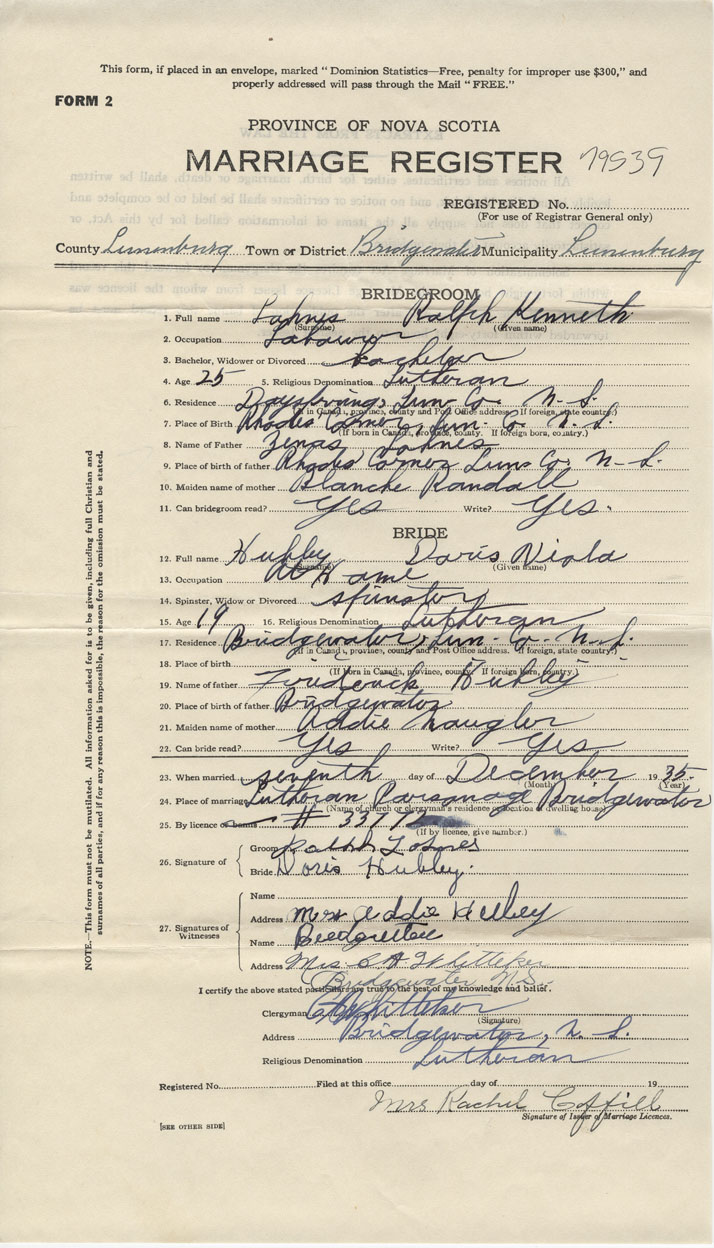 This form, if placed in an envelope, marked " Dominion Statistics—Free, penalty for improper use $300," and
properly addressed will pass through the Mail " FREE."
FORM 2
PROVINCE OF NOVA SCOTIA
MARRIAGE REGISTER 79539
REGISTERED No.
(For use of Registrar General only)
County Lunenburg Town or District Bridgewater Municipality Lunenburg
BRIDEGROOM
1. Full name Lohnes Ralph Kenneth
(Surname) (Given name)
2. Occupation Labourer
3. Bachelor, Widower or Divorced bachelor
4. Age 25 5. Religious Denomination Lutheran
6. Residence Dayspring, Lun. Co. N. S.
(If in Canada, province, county and Post Office address. If foreign, state country.)
7. Place of Birth Rhodes Corner, Lun. Co. N. S.
(If born in Canada, province, county. If foreign born, country.)
8. Name of Father Zenas Lohnes
9. Place of birth of father Rhodes Corner Lun. Co. N. S.
10. Maiden name of mother Blanche Randall
11. Can bridegroom read? Yes Write? Yes.
BRIDE
12. Full name Hubley Doris Viola
(Surname) (Given name)
13. Occupation At Home
14. Spinster, Widow or Divorced spinster
15. Age 19 16. Religious Denomination Lutheran
17. Residence Bridgewater, Lun. Co. N. S.
(If in Canada, province, county and Post Office address. If foreign, state country.)
18. Place of birth " " " "
(If born in Canada, province, county. If foreign born, country.)
19. Name of father Frederick Hubley
20. Place of birth of father Bridgewater
21. Maiden name of mother Addie Naugler
22. Can bride read? Yes Write? Yes
23. When married seventh day of December 1935.
(Month) (Year)
24. Place of marriage Lutheran Parsonage Bridgewater
(Name of church or clergyman's residence or location of dwelling house)
25. By licence or banns # 3377
(If by licence, give number.)
26. Signature of
Groom Ralph Lohnes
Bride Doris Hubley.
27. Signatures of Witnesses
Name
Address Mrs Addie Hubley
Name Bridgewater
Address Mrs. Whitteker
Bridgewater N.S.
I certify the above stated particulars are true to the best of my knowledge and belief.
Clergyman Whitteker
(Signature)
Address Bridgewater, N. S.
Religious Denomination Lutheran
Registered No. Filed at this office day of 19
Mrs Rachel Coffill
Signature of Issuer of Marriage Licences.
[SEE OTHER SIDE]
NOTE.—This form must not be mutilated. All information asked for is to be given, including full Christian and
surnames of all parties, and if for any reason this is impossible, the reason for the omission must be stated.